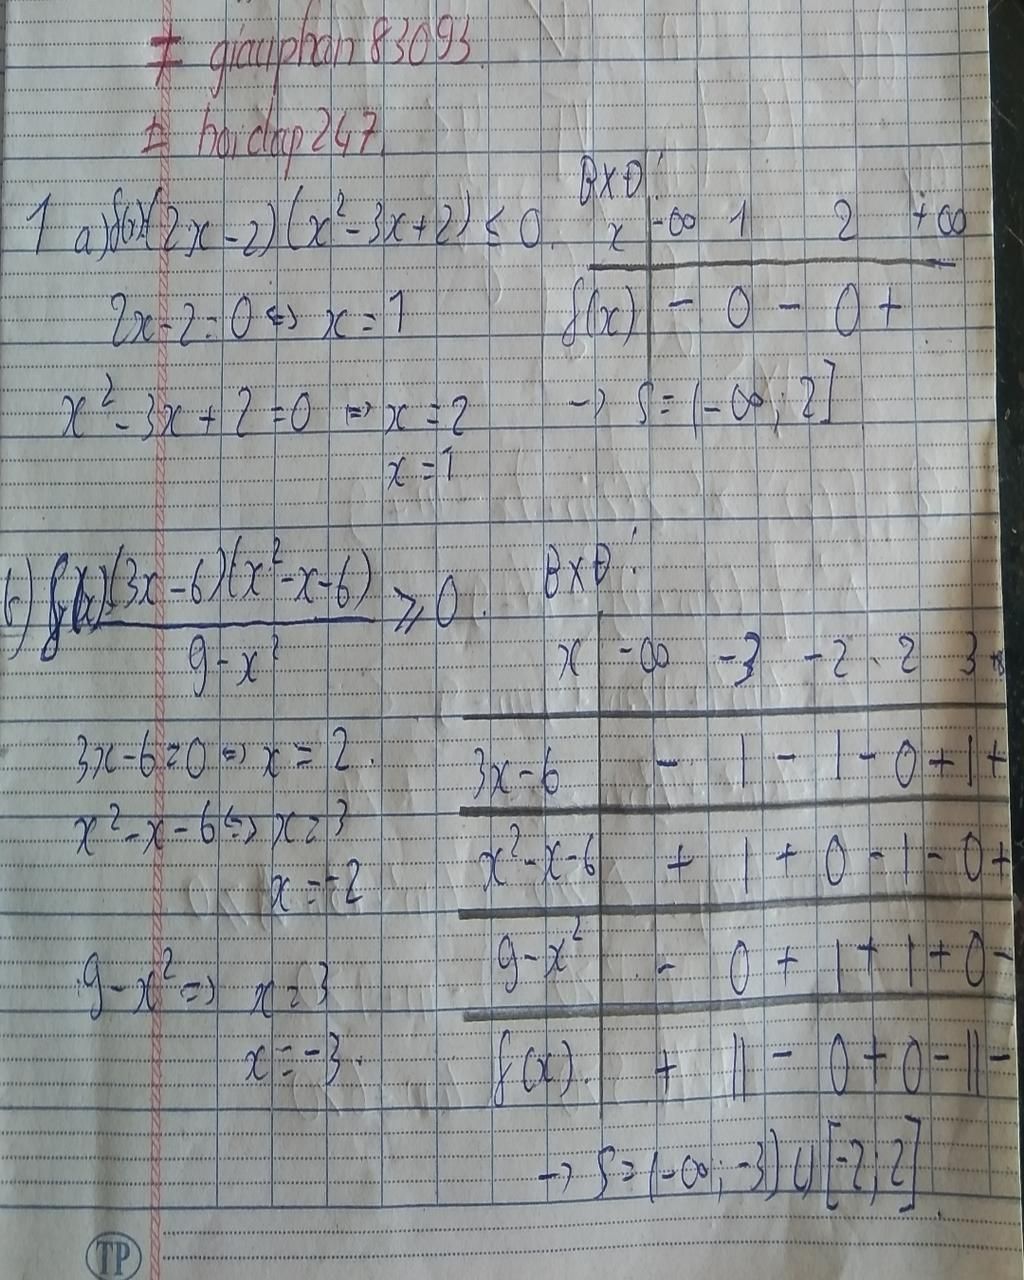 ± giauphan83093
± hoidap247
1 a) f(x)(2x-2)(x²-3x+2) ≤ 0.
2x-2=0 ⇔ x=1
x²-3x+2=0 ⇔ x=2
x=1
BXD:
x -∞ 1 2 +∞
f(x) - 0 - 0 +
→ S=(-∞; 2]
b) f(x)(3x-6)(x²-x-6) ≥ 0.
9-x²
3x-6=0 ⇔ x=2.
x²-x-6 ⇔ x=3
x=-2
9-x² ⇒ x=3
x=-3.
BXD:
x -∞ -3 -2 2 3 +∞
3x-6 - | - | - 0 + | +
x²-x-6 + | + 0 - | - 0 +
9-x² - 0 + | + | + 0 -
f(x) + || - 0 + 0 - || -
→ S=(-∞; -3) ∪ [-2; 2]
TP